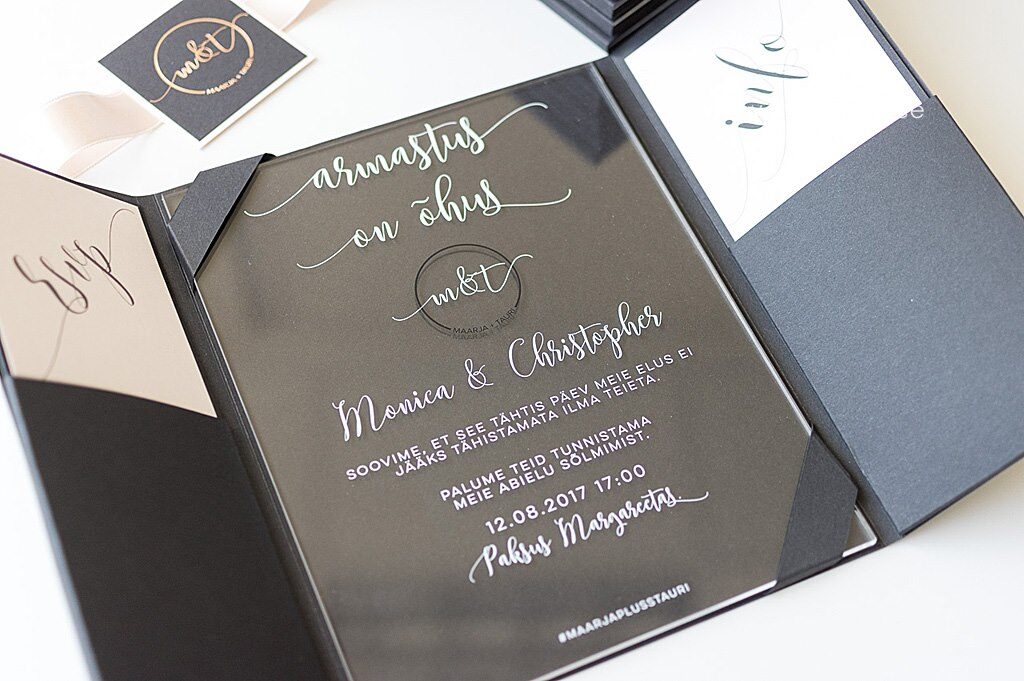 m&t
MAARJA + TAURI
rsvp
armastus
on õhus
m&t
MAARJA + TAURI
Monica & Christopher
SOOVIME, ET SEE TÄHTIS PÄEV MEIE ELUS EI
JÄÄKS TÄHISTAMATA ILMA TEIETA.
PALUME TEID TUNNISTAMA
MEIE ABIELU SÕLMIMIST.
12.08.2017 17:00
Paksus Margareetas.
#MAARJAPLUSSTAURI
info